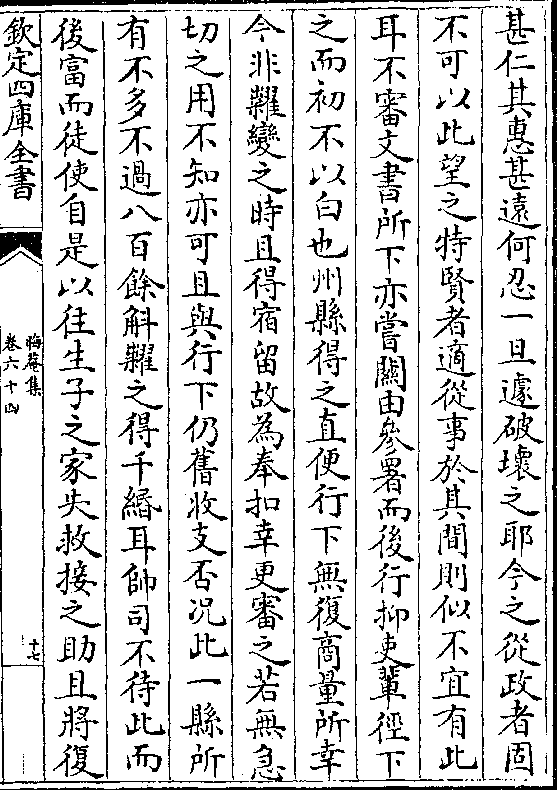 甚仁其惠甚逺何忍一旦遽破壞之耶今之從政者固
不可以此望之特賢者適從事於其間則似不宜有此
耳不審文書所下亦嘗關由參署而後行抑吏輩徑下
之而初不以白也州縣得之直便行下無復商量所幸
今非糶變之時且得宿留故為奉扣幸更審之若無急
切之用不知亦可且與行下仍舊收支否况此一縣所
有不多不過八百餘斛糶之得千緡耳帥司不待此而
後富而徒使自是以往生子之家失救接之助且將復
欽定四庫全書
晦菴集
卷六十四
十七